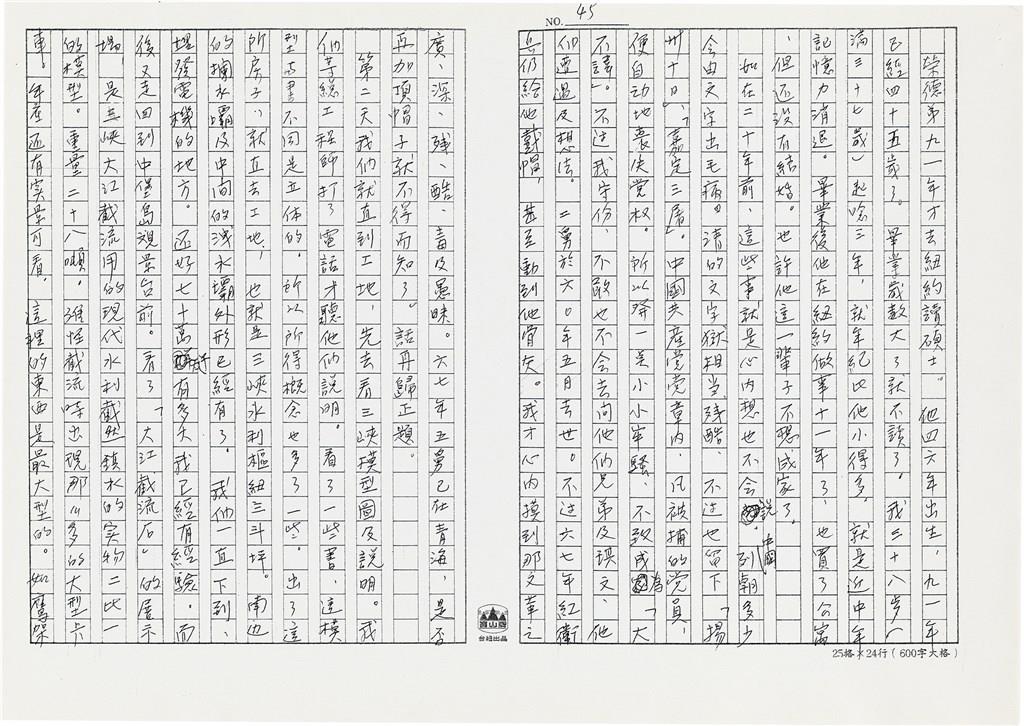 NO. 45
榮德第九一年才去紐約讀碩士。他四六年出生,九一年
已經四十五歲了。畢業歲數大了就不談了。我三十八步(
滿三十七歲)起唸三年,就年紀比他小得多,就是近中年
記憶力消退。畢業後他在紐約做事十一年了、也買了公寓
、但还沒有結婚。也許他這一輩子不想成家了。
如在二十年前、這些事就是心內想也不會說。中國列朝多少
今由文字出毛病。清的文字獄相当残酷、不过也留下「揚
州十日」、「嘉定三屠」。中國共產党党章内、凡被捕的党員,
便自动地丧失党权。所以発一臭小小牢騷、不致成為「大
不諱」。不过我守份、不敢也不会去问他们兄弟及璞文、他
们遭遇及想法。二舅於六〇年五月去世。不过六七年紅衛
兵仍給他戴帽,甚至動到他骨灰。我才心内摸到那文革之
廣、深、残、酷、毒及愚昧。六七年五舅已在青海,是否
再加頂帽子就不得而知了。話再歸正題。
第二天我们就直到工地,先去看三峡模型圖及説明。我
们等総工程師打了電話才聽他们説明。看了一些書、連模
型与畫不同是立体的。所以所得概念也多了一些。出了這
所房子、就直去工地,也就是三峡水利樞紐三斗坪。南边
的擋水壩及中间的洩水壩外形已經有了。我们一直下到、
壩發電機的地方。还好七十萬瓩有多大我已經有經驗。而
後又走回到中堡島視景台前。看了「大江截流石」的展示
場,是三峡大江截流用的現代水利截然鎮水的实物二比一
的模型。重量二十八噸。难怪截流時出現那么多的大型卡
車。年產还有实景可看。這裡的東西是最大型的。如鷹架
直山牌
台紐出品
25格×24行(600字大格)